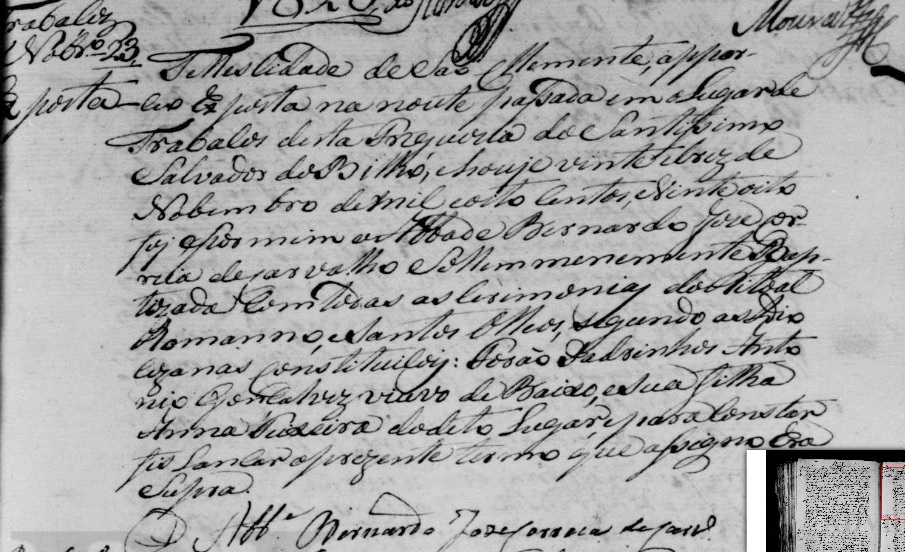 Trabalos
Nobr.o 23
Exposta
Moura
Fellescidade de São Clemente, appor-
leo Exposta na noute passada im o Lugar de
Trabalos desta Freguezia do Santissimo
Salvador do Bilhó, e houje vinte e trez de
Nobembro de mil e oito Centos, e Vinte oito
foj e por mim o Abbade Bernardo Joze Cor-
reia de Carvalho Sollemmenemente Bap-
tozada Com todas as Cerimonias do Ritoal
Romanno, e Santos Olleos, segundo as Dio
cezanas Constituicois: forão Padrinhos Anto
nio Goncalvez viuvo de Baixo, e sua filha
Anna Teixeira do dito Lugar, e para Constar
fis Lancar o prezente termo que assigno Era
Supra.
O Abb.e Bernardo Joze Correia de Carv.o